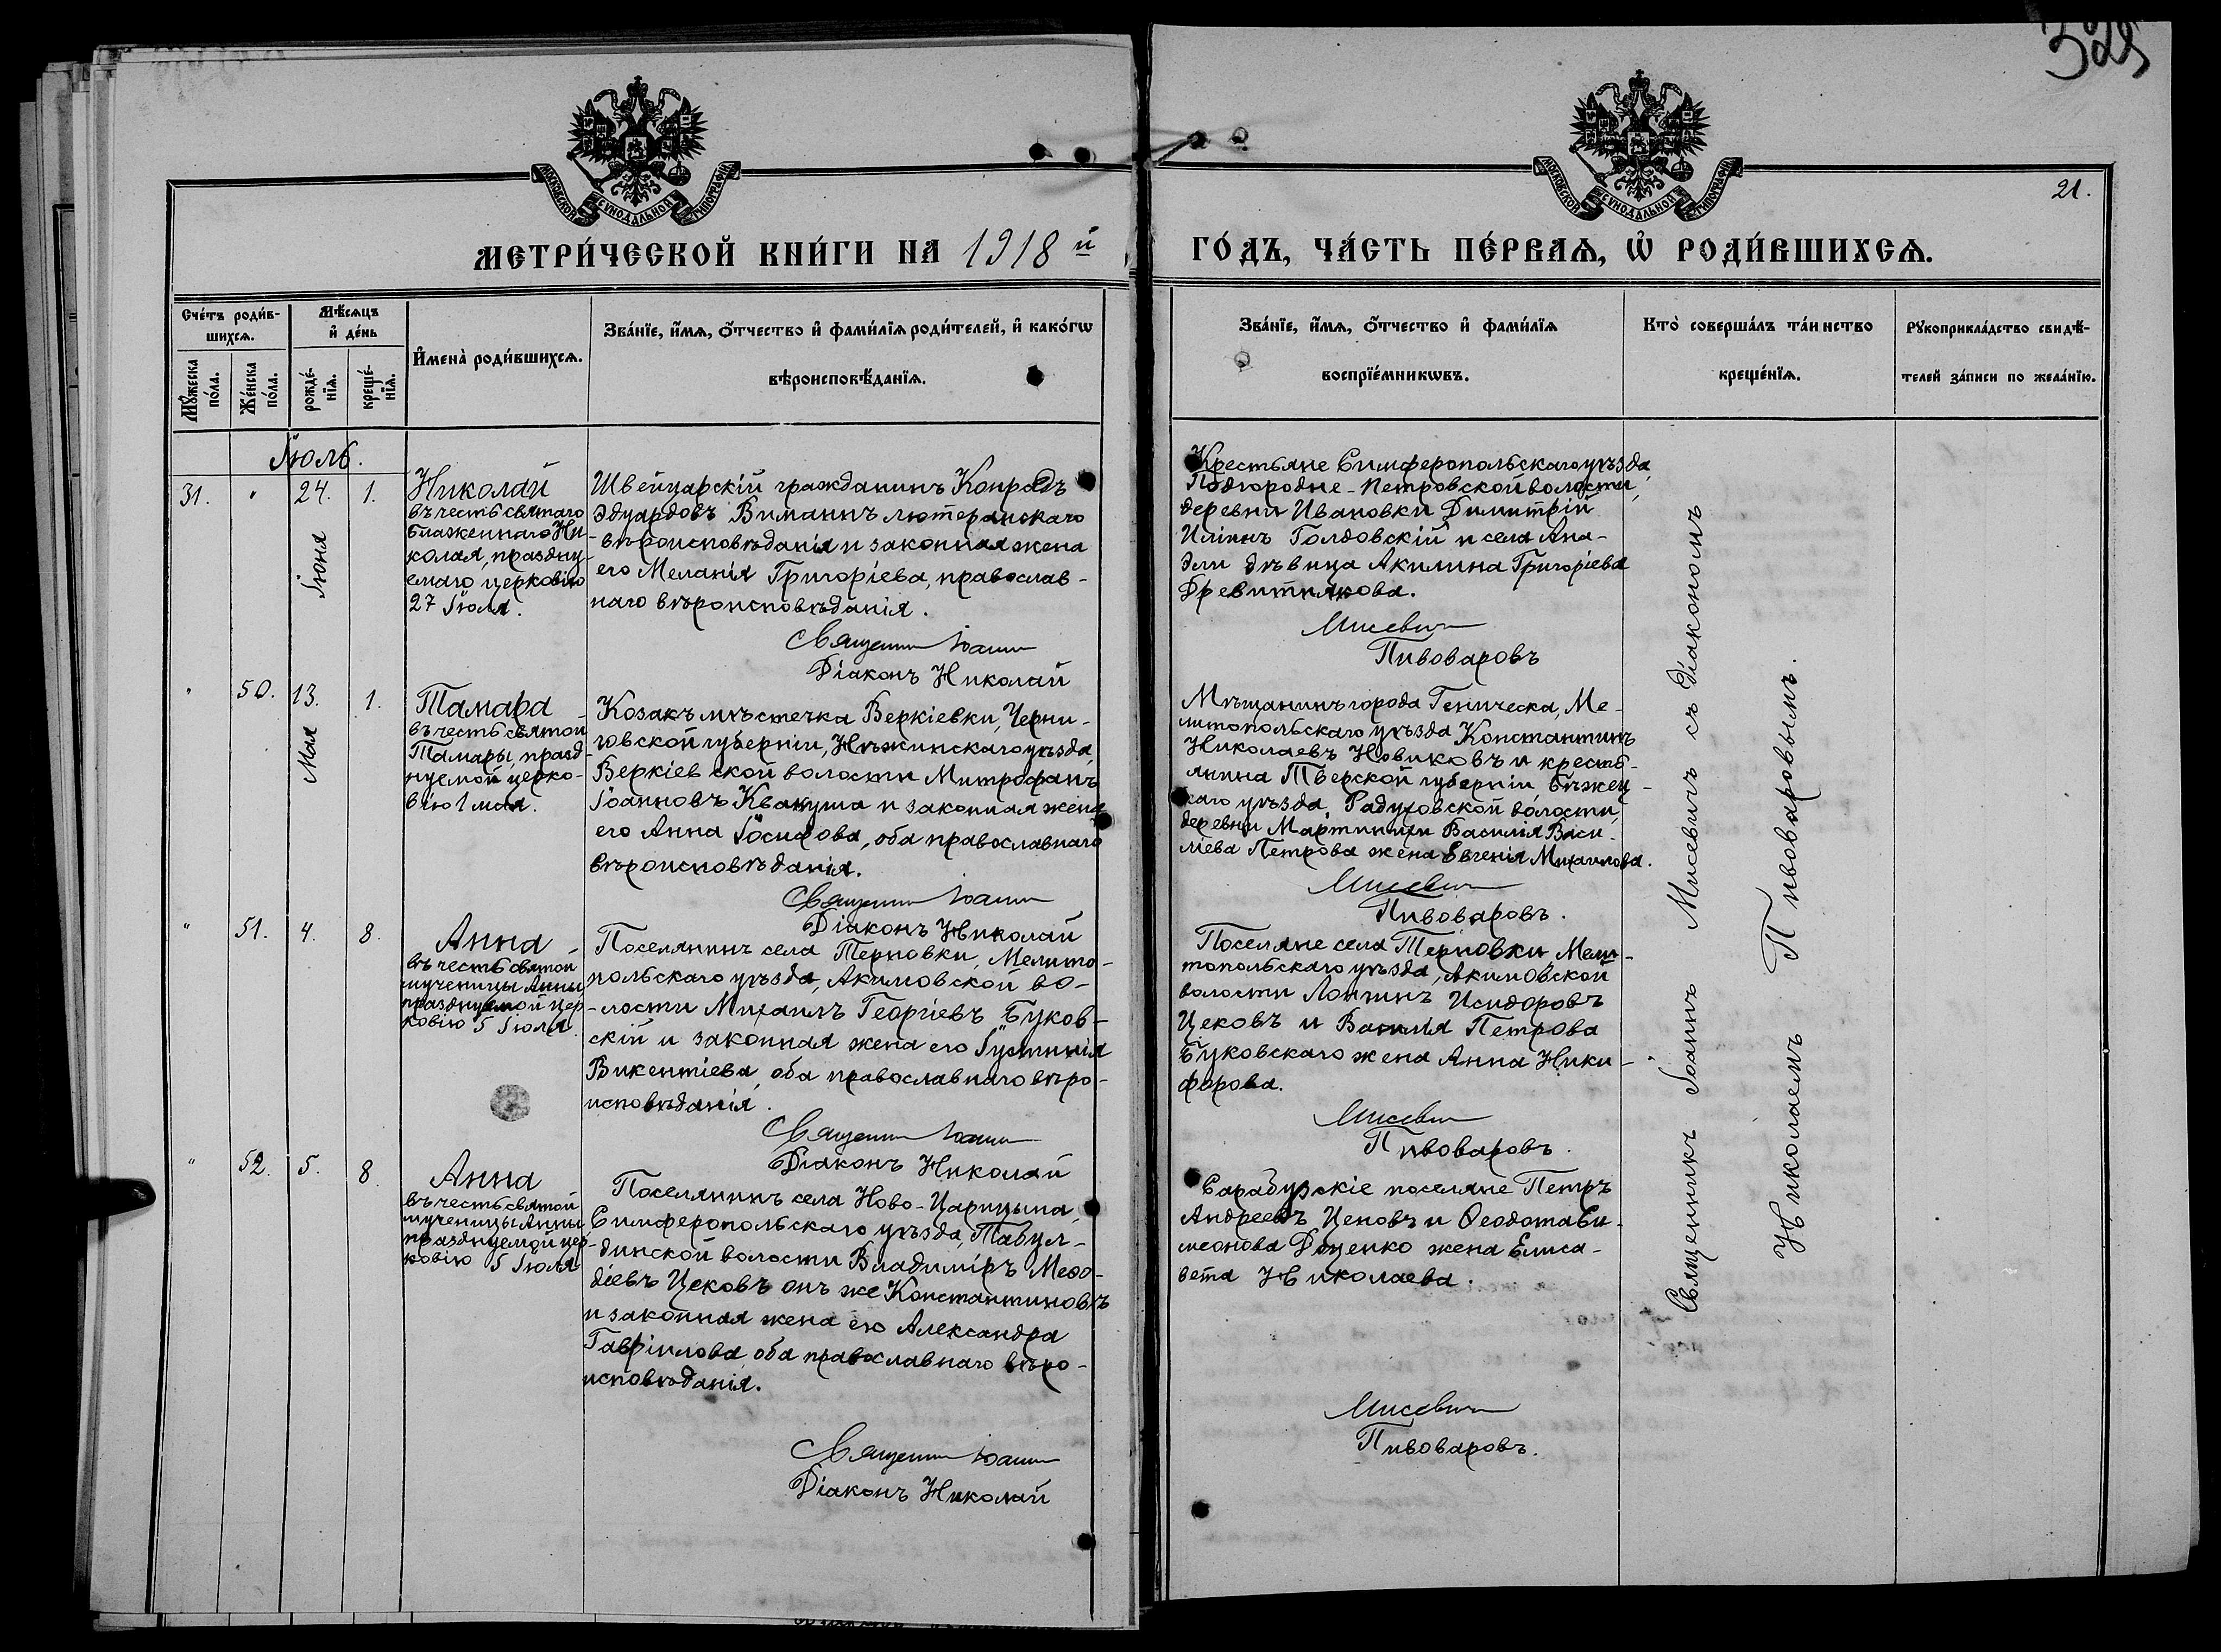 325
21.
МОСКОВСКОЙ СѴНОДАЛЬНОЙ ТИПОГРАФІИ
МОСКОВСКОЙ СѴНОДАЛЬНОЙ ТИПОГРАФІИ
МЕТРИ́ЧЕСКОЙ КНИ́ГИ НА 1918 й
ГО́ДЪ, ЧА́СТЬ ПЕ́РВАѦ, Ѡ҆ РОДИ́ВШИХСѦ.
Сче́тъ роди́в-
шихсѧ.
Мꙋ́жеска по́ла.
Же́нска по́ла.
Мѣ́сѧцъ
и҆ де́нь
рожде́-
нїѧ.
креще́-
нїѧ.
И҆мена̀ роди́вшихсѧ.
Зва́нїе, и҆́мѧ, ѻ҆́тчество и҆ фами́лїѧ роди́телей, и҆ како́гѡ
вѣроисповѣ́данїѧ.
Зва́нїе, и҆́мѧ, ѻ҆́тчество и҆ фами́лїѧ
воспрїе́мникѡвъ.
Кто̀ соверша́лъ та́инство
креще́нїѧ.
Рꙋкоприкла́дство свидѣ́-
телей за́писи по жела́нїю.
Іюль.
31.
"
24.
Іюня
1.
Николай
въ честь святаго
блаженнаго Ни-
колая, праздну-
емаго церковію
27 Іюля.
Швейцарскій гражданинъ Конрадъ
Эдуардовъ Виманъ лютеранскаго
вѣроисповѣданія и законная жена
его Меланія Григоріева, православ-
наго вѣроисповѣданія.
Священникъ Іоаннъ
Діаконъ Николай
Крестьяне Симферопольскаго уѣзда
Подгородне-Петровской волости,
деревни Ивановки Димитрій
Иліинъ Голдовскій и села Ана-
дели дѣвица Акилина Григоріева
Древитнякова.
Мисевичъ
Пивоваровъ
"
50.
13.
Мая
1.
Тамара
въ честь святой
Тамары, празд-
нуемой церко-
вію 1 мая.
Козакъ мѣстечка Веркіевки, Черни-
говской губерніи, Нѣжинскаго уѣзда,
Веркіевской волости Митрофанъ
Іоанновъ Квакуша и законная жена
его Анна Іосифова, оба православнаго
вѣроисповѣданія.
Священникъ Іоаннъ
Діаконъ Николай
Мѣщанинъ города Геническа, Ме-
литопольскаго уѣзда Константинъ
Николаевъ Новиковъ и кресть-
янина Тверской губерніи Бѣжец-
каго уѣзда, Радуховской волости,
деревни Мартинихи Василія Васи-
ліева Петрова жена Евгенія Михаилова.
Мисевичъ
Пивоваровъ.
"
51.
4.
8.
Анна
въ честь святой
мученицы Анны
празднуемой цер-
ковію 5 Іюля.
Поселянинъ села Терновки, Мелито-
польскаго уѣзда, Акимовской во-
лости Михаилъ Георгіевъ Буков-
скій и законная жена его Іустинія
Викентіева, оба православнаго вѣро-
исповѣданія.
Священникъ Іоаннъ
Діаконъ Николай
Поселяне села Терновки, Мели-
топольскаго уѣзда, Акимовской
волости Лонгинъ Исидоровъ
Цековъ и Василія Петрова
Буковскаго жена Анна Ники-
форова.
Мисевичъ
Пивоваровъ.
"
52.
5.
8.
Анна
въ честь святой
мученицы Анны
празднуемой цер-
ковію 5 Іюля
Поселянинъ села Ново-Царицына,
Симферопольскаго уѣзда, Табул-
динской волости Владиміръ Меѳо-
діевъ Цековъ онъ же Константиновъ
и законная жена его Александра
Гавріилова оба православнаго вѣро-
исповѣданія.
Священникъ Іоаннъ
Діаконъ Николай
Сарабузскіе поселяне Петръ
Андреевъ Ценовъ и Ѳеодота Си-
меонова Доценко жена Елиса-
вета Николаева.
Мисевичъ
Пивоваровъ.
Священникъ Іоаннъ Мисевичъ съ Діакономъ
Николаемъ Пивоваровымъ.